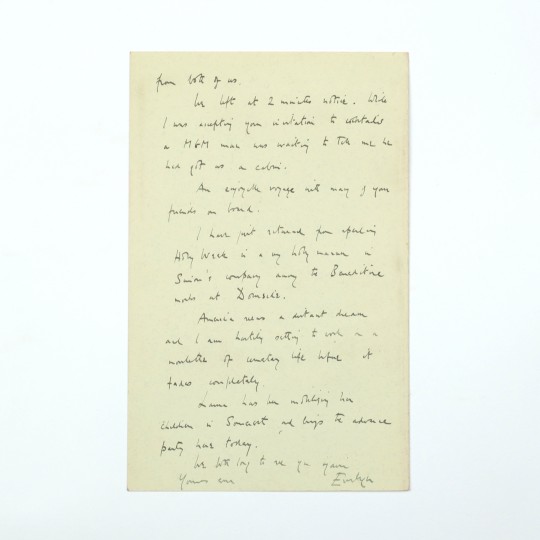 from both of us.
We left at 2 minutes notice. While
I was accepting your invitation to cocktails
a MGM man was waiting to tell me he
had got us a cabin.
An enjoyable voyage with many of your
friends on board.
I have just returned from spending
Holy Week in a very holy manner in
company among the Benedictine
monks at Downside.
America seems a distant dream
and I am hastily setting to work on a
novelette of cemetery life before it
fades completely.
Laura has been mobilizing her
children in Somerset and brings the advance
party here today.
We both long to see you again
Yours ever Evelyn